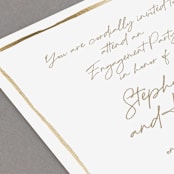 You are cordially invited to
attend an
Engagement Party
in honor of
Steph
and